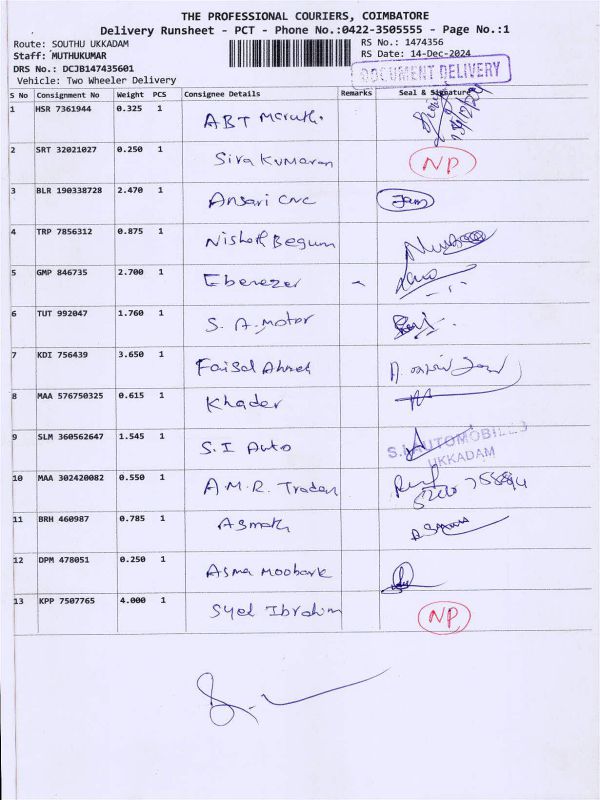 THE PROFESSIONAL COURIERS, COIMBATORE
Delivery Runsheet - PCT - Phone No.:0422-3505555 - Page No.:1
Route: SOUTHU UKKADAM
RS No.: 1474356
Staff: MUTHUKUMAR
RS Date: 14-Dec-2024
DRS No.: DCJB147435601
DOCUMENT DELIVERY
Vehicle: Two Wheeler Delivery
S No Consignment No Weight PCS Consignee Details Remarks Seal & Signature
1 HSR 7361944 0.325 1 ABT Maruthi
2 SRT 32021027 0.250 1 Siva Kumaran NP
3 BLR 190338728 2.470 1 Ansari CNC
4 TRP 7856312 0.875 1 Nisha Begum
5 GMP 846735 2.700 1 Ebenezer
6 TUT 992047 1.760 1 S. A. Motor
7 KDI 756439 3.650 1 Faisal Ahmed
8 MAA 576750325 0.615 1 Khader
9 SLM 360562647 1.545 1 S.I Auto S.I AUTOMOBILES
UKKADAM
10 MAA 302420082 0.550 1 A.M.R. Traders
11 BRH 460987 0.785 1 Asmath
12 DPM 478051 0.250 1 Asma Moobark
13 KPP 7507765 4.000 1 Syed Ibrahim NP